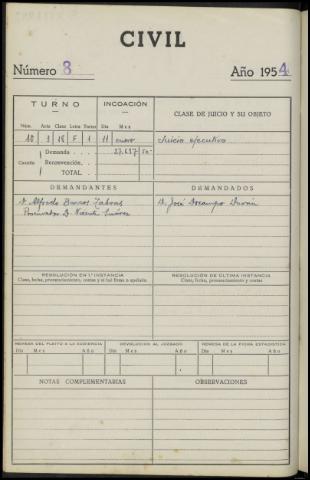 CIVIL
Número 8 Año 1954
TURNO INCOACIÓN CLASE DE JUICIO Y SU OBJETO
Núm. Acta Clase Letra Turno Día Mes
10 1 18 F 1 11 enero Juicio ejecutivo
Cuantía Demanda 27.637
Reconvención.
TOTAL
DEMANDANTES DEMANDADOS
D. Alfredo Barros D. José Docampo
Procurador D. Vicente Suárez
RESOLUCIÓN EN 1.ª INSTANCIA RESOLUCIÓN DE ÚLTIMA INSTANCIA
Clase, fecha, pronunciamiento, costas y si fué firme o apelada. Clase, fecha, pronunciamiento y costas
REMESA DEL PLEITO A LA AUDIENCIA DEVOLUCIÓN AL JUZGADO REMESA DE LA FICHA ESTADÍSTICA
Día Mes Año Día Mes Año Día Mes Año
NOTAS COMPLEMENTARIAS OBSERVACIONES